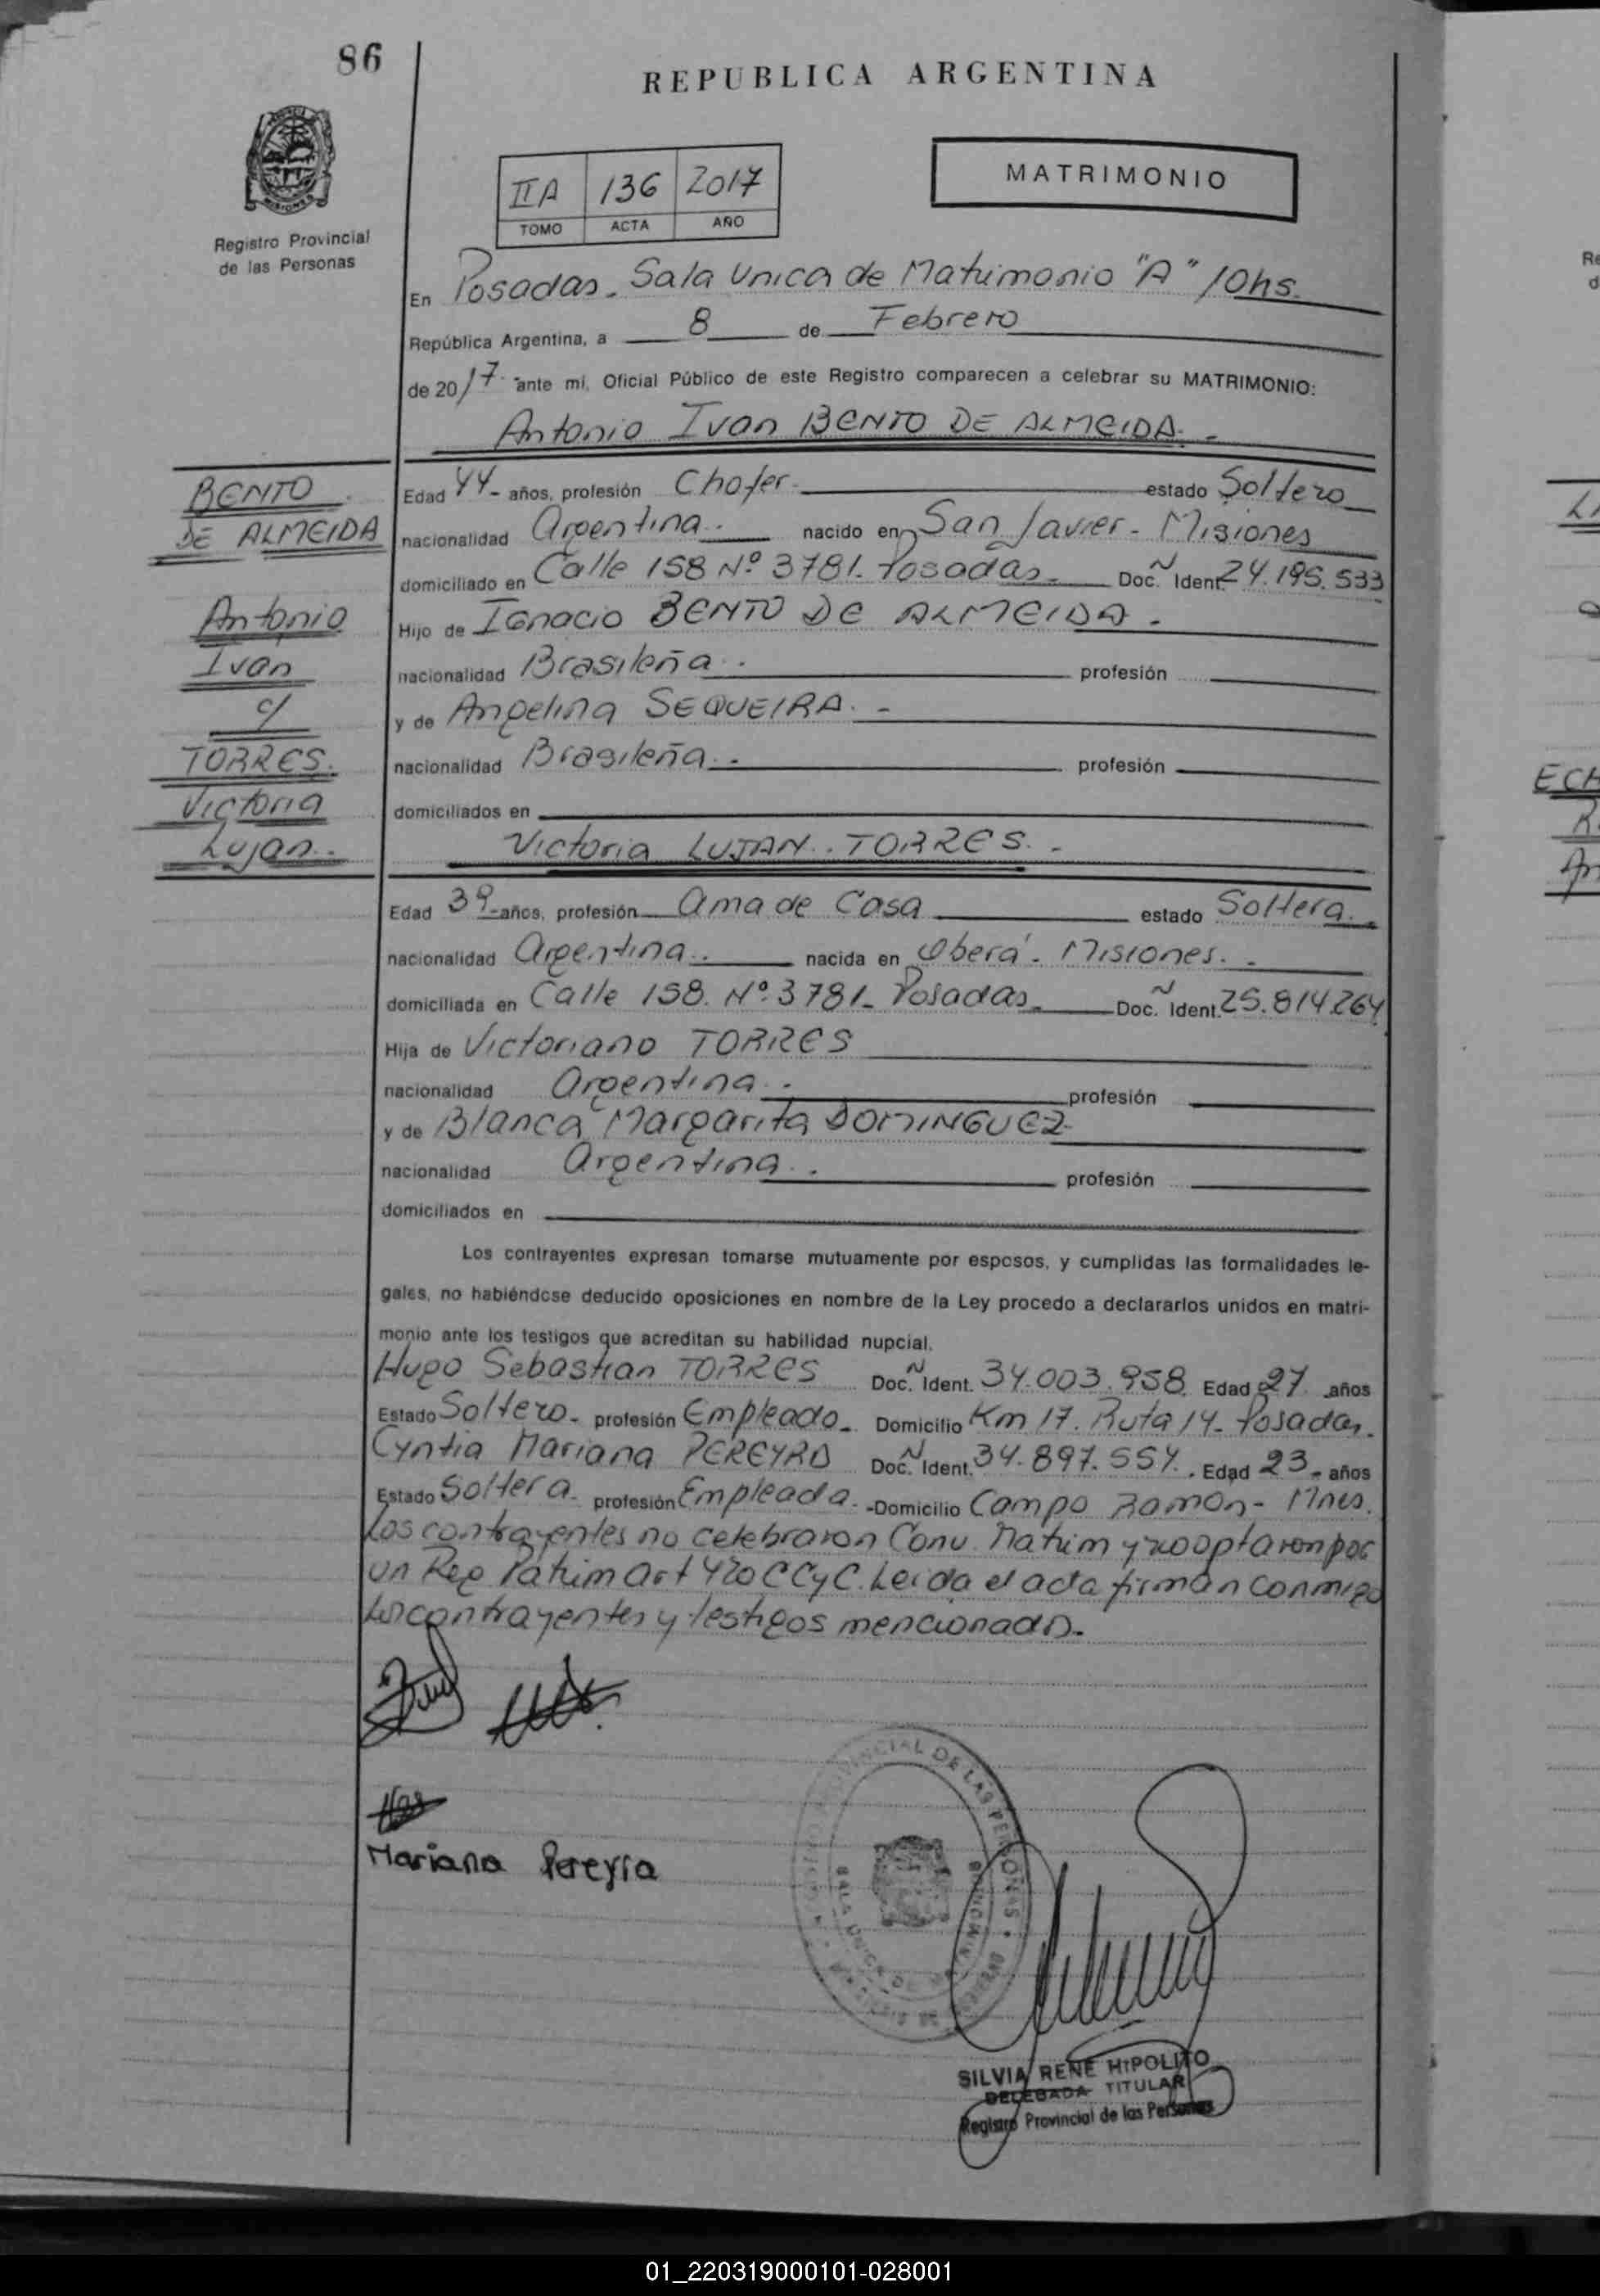 86
REPUBLICA ARGENTINA
MATRIMONIO
IIA 136 2017
TOMO ACTA AÑO
MISIONES
Registro Provincial
de las Personas
En Posadas. Sala Unica de Matrimonio "A" 10hs.
República Argentina, a 8 de Febrero
de 2017 ante mi, Oficial Público de este Registro comparecen a celebrar su MATRIMONIO:
Antonio Ivan BENTO DE ALMEIDA. -
BENTO
DE ALMEIDA
Antonio
Ivan
c/
TORRES.
Victoria
Lujan.
Edad 44- años, profesión Chofer. estado Soltero
nacionalidad Argentina. nacido en San Javier - Misiones
domiciliado en Calle 158 Nº 3781. Posadas. Doc. N Ident. 24.195.533
Hijo de Ignacio BENTO DE ALMEIDA.
nacionalidad Brasileña. profesión
y de Angelina SEQUEIRA. -
nacionalidad Brasileña. profesión
domiciliados en
Victoria LUJAN. TORRES. -
Edad 39- años, profesión Ama de Casa estado Soltera.
nacionalidad Argentina. nacida en Oberá - Misiones. -
domiciliada en Calle 158. Nº 3781- Posadas. Doc. N Ident. 25.814.264
Hija de Victoriano TORRES
nacionalidad Argentina. profesión
y de Blanca Margarita DOMINGUEZ
nacionalidad Argentina. profesión
domiciliados en
Los contrayentes expresan tomarse mutuamente por esposos, y cumplidas las formalidades le-
gales, no habiéndose deducido oposiciones en nombre de la Ley procedo a declararlos unidos en matri-
monio ante los testigos que acreditan su habilidad nupcial.
Hugo Sebastian TORRES Doc. N Ident. 34.003.958 Edad 27 años
Estado Soltero- profesión Empleado- Domicilio Km 17. Ruta 14- Posadas.
Cyntia Mariana PEREYRA Doc. N Ident. 34.897.554. Edad 23- años
Estado Soltera- profesión Empleada. -Domicilio Campo Ramon- Mnes.
Los contrayentes no celebraron Conv. Matrim y no optaron por
un Reg Patrim Art 420 CCyC. Leida el acta firman conmigo
los contrayentes y testigos mencionados.
Mariana Pereyra
PROVINCIAL DE LAS PERSONAS
SALA UNICA DE
SILVIA RENE HIPOLITO
DELEGADA TITULAR
Registro Provincial de las Personas
ECH
01_220319000101-028001